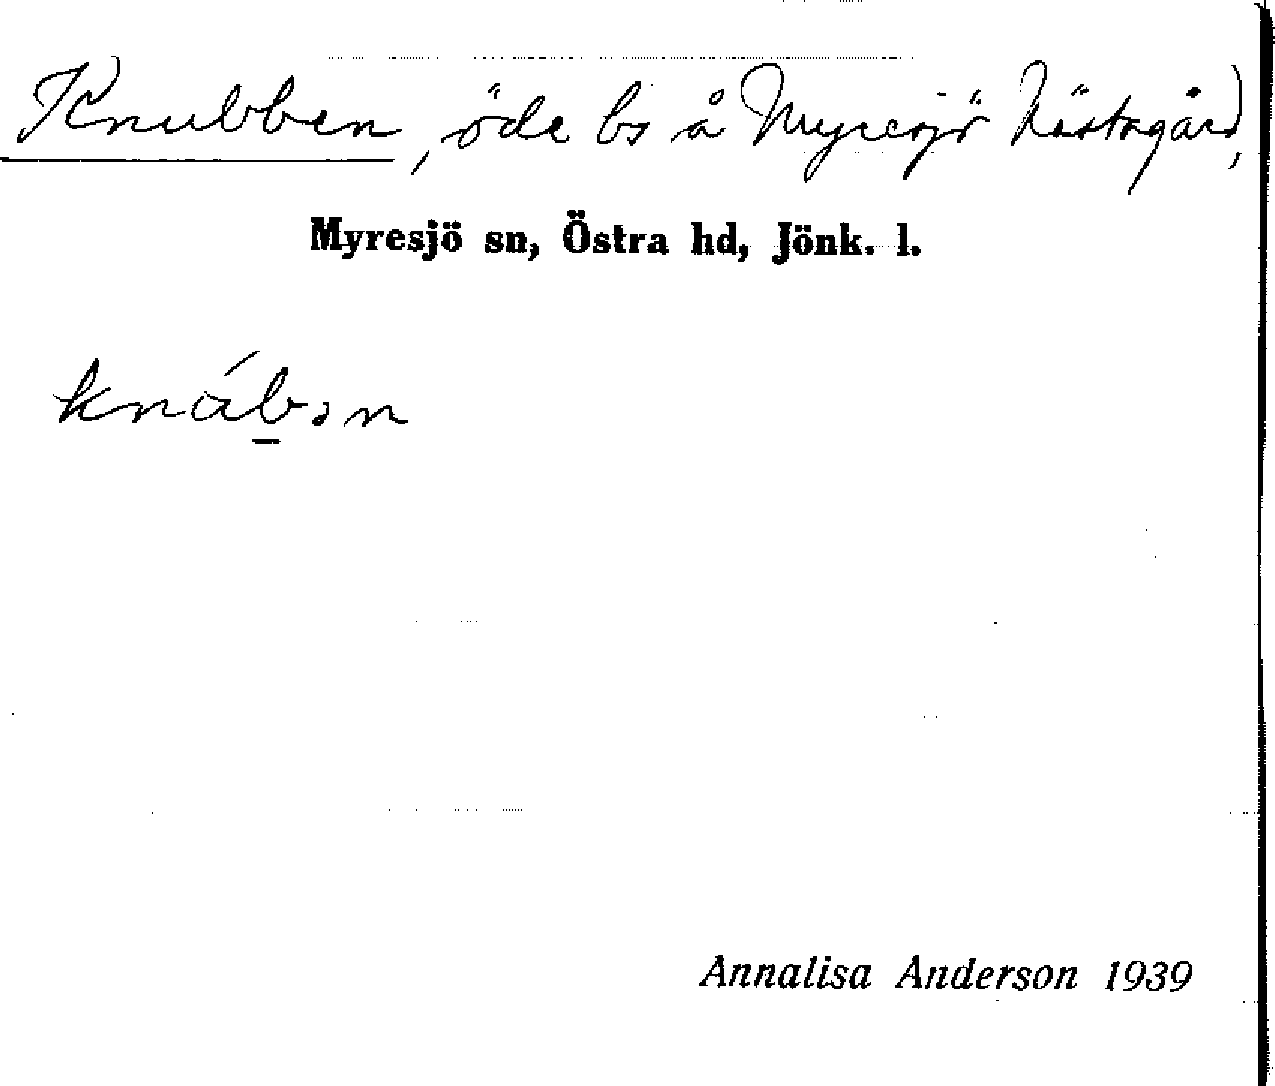 Knubben, öde bs å Myresjö Nästagård,
Myresjö sn, Östra hd, Jönk. l.
knáb̲ən
Annalisa Anderson 1939